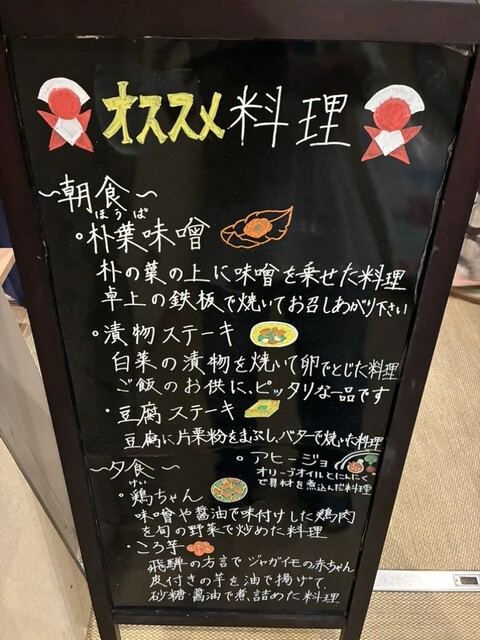 オススメ料理
～朝食～
ほうば
・朴葉味噌
朴の葉の上に味噌を乗せた料理
卓上の鉄板で焼いてお召しあがり下さい
・漬物ステーキ
白菜の漬物を焼いて卵でとじた料理
ご飯のお供に、ピッタリな一品です
・豆腐ステーキ
豆腐に片栗粉をまぶし、バターで焼いた料理
～夕食～
・アヒージョ
オリーブオイルとにんにく
で具材を煮込んだ料理
けい
・鶏ちゃん
味噌や醤油で味付けした鶏肉
を旬の野菜で炒めた料理
・ころ芋
飛騨の方言でジャガイモの赤ちゃん
皮付きの芋を油で揚げて、
砂糖・醤油で煮詰めた料理